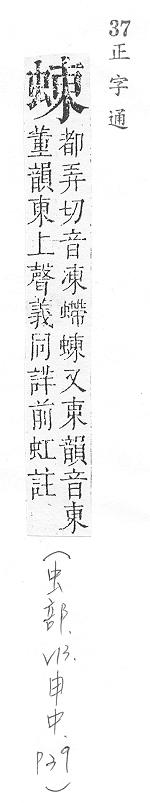 37正字通
蝀
都弄切音凍螮蝀又東韻音東
董韻東上聲義同詳前虹註
(虫部. V13. 申中. P29)